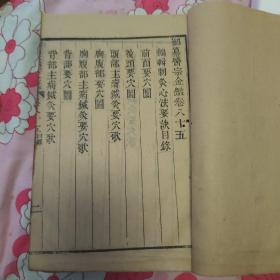 御纂醫宗金鑑卷八十五
編輯刺灸心法要訣目錄
前面要穴圖
後頭要穴圖
頭部主病鍼灸要穴歌
胸腹部要穴圖
胸腹部主病鍼灸要穴歌
背部要穴圖
背部主病鍼灸要穴歌